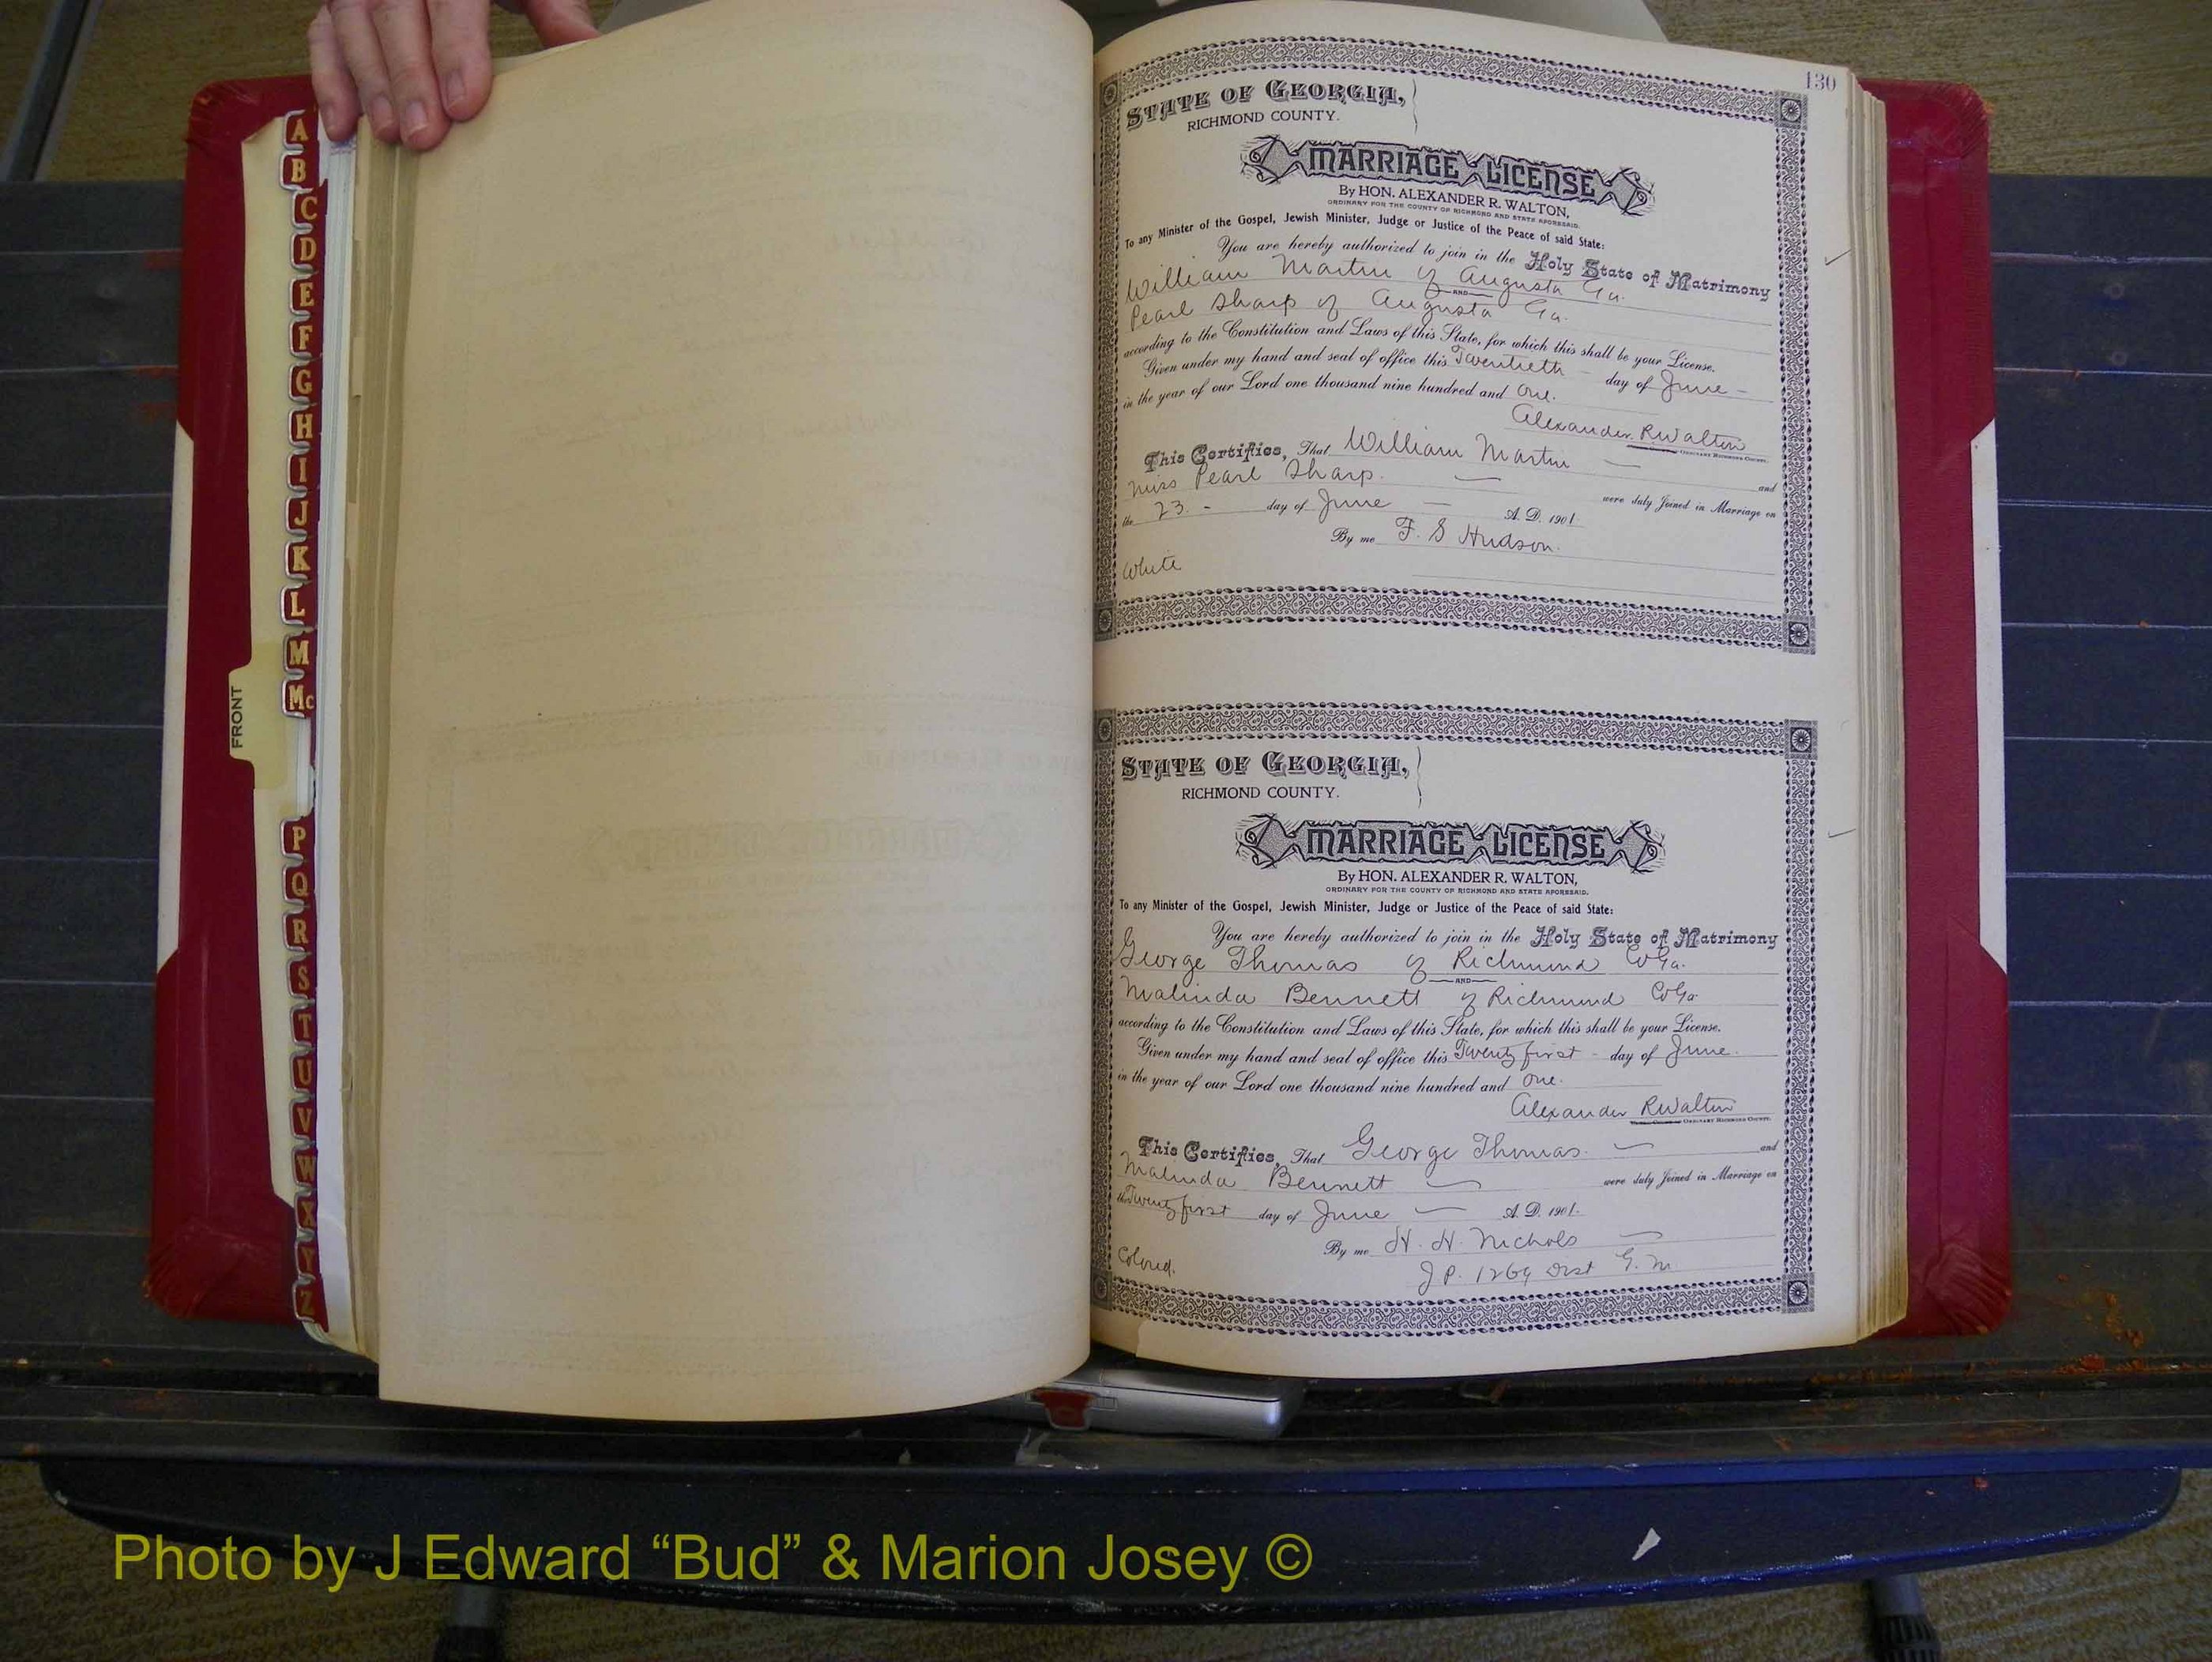 A
B
C
D
E
F
G
H
I
J
K
L
M
Mc
P
Q
R
S
T
U
V
W
X
Y
Z
FRONT
130
STATE OF GEORGIA,
RICHMOND COUNTY.
MARRIAGE LICENSE
By HON. ALEXANDER R. WALTON,
ORDINARY FOR THE COUNTY OF RICHMOND AND STATE AFORESAID.
To any Minister of the Gospel, Jewish Minister, Judge or Justice of the Peace of said State:
You are hereby authorized to join in the Holy State of Matrimony
William Martin of Augusta Ga.
AND
Pearl Sharp of Augusta Ga.
according to the Constitution and Laws of this State, for which this shall be your License.
Given under my hand and seal of office this Twentieth - day of June -
in the year of our Lord one thousand nine hundred and One.
Alexander R Walton
ORDINARY RICHMOND COUNTY.
This Certifies, That William Martin — and
Miss Pearl Sharp. — were duly Joined in Marriage on
the 23. - day of June — A. D. 1901.
By me F. S Hudson.
White
STATE OF GEORGIA,
RICHMOND COUNTY.
MARRIAGE LICENSE
By HON. ALEXANDER R. WALTON,
ORDINARY FOR THE COUNTY OF RICHMOND AND STATE AFORESAID.
To any Minister of the Gospel, Jewish Minister, Judge or Justice of the Peace of said State:
You are hereby authorized to join in the Holy State of Matrimony
George Thomas of Richmond Co Ga.
AND
Malinda Bennett of Richmond Co Ga
according to the Constitution and Laws of this State, for which this shall be your License.
Given under my hand and seal of office this Twenty first - day of June.
in the year of our Lord one thousand nine hundred and One.
Alexander R Walton
ORDINARY RICHMOND COUNTY.
This Certifies, That George Thomas. — and
Malinda Bennett — were duly Joined in Marriage on
the Twenty first day of June — A. D. 1901.
By me H. H. Nichols —
Colored.
J P. 1269 Dist G. M.
Photo by J Edward “Bud” & Marion Josey ©